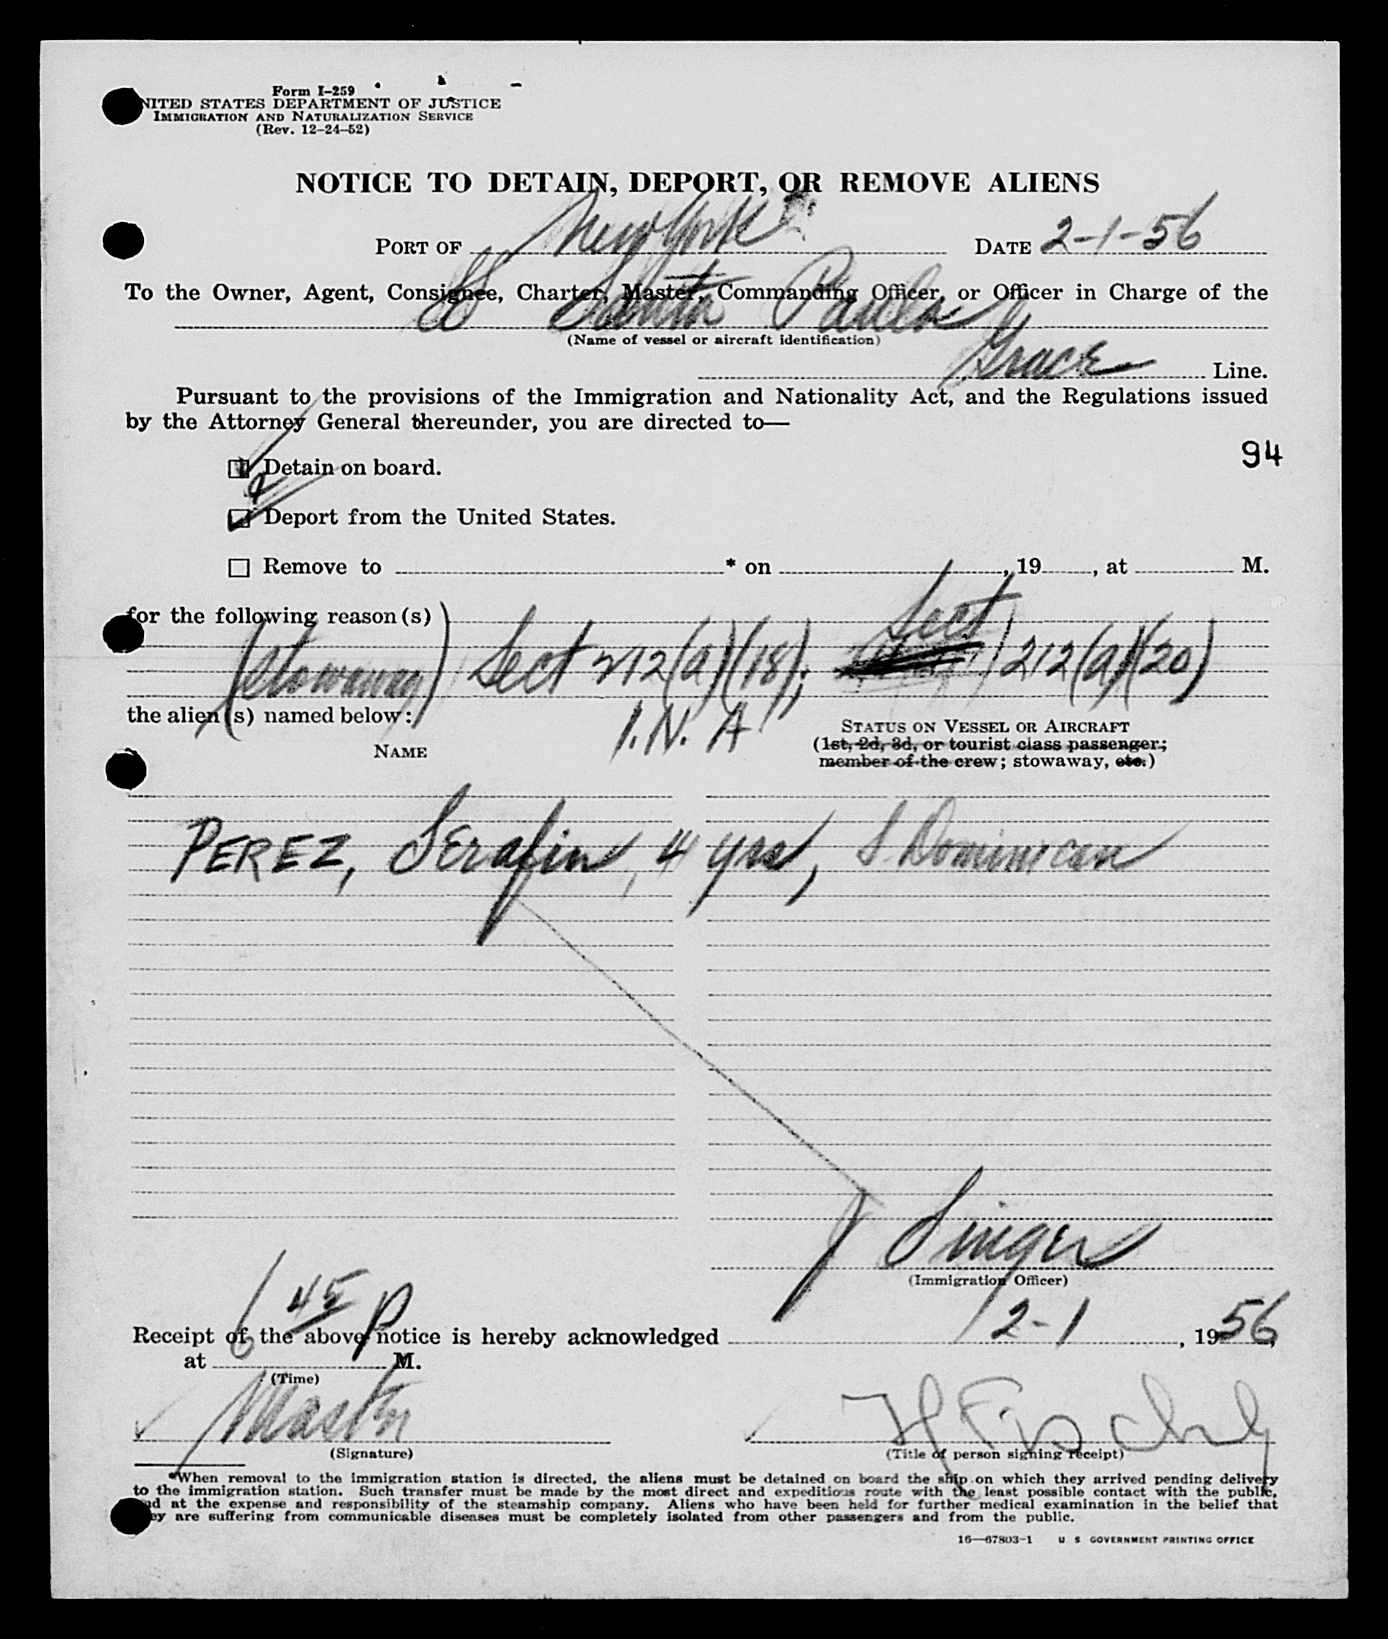 Form I-259
UNITED STATES DEPARTMENT OF JUSTICE
IMMIGRATION AND NATURALIZATION SERVICE
(Rev. 12-24-52)
NOTICE TO DETAIN, DEPORT, OR REMOVE ALIENS
PORT OF New York DATE 2-1-56
To the Owner, Agent, Consignee, Charter, Master, Commanding Officer, or Officer in Charge of the
SS Santa Paula
(Name of vessel or aircraft identification)
Grace Line.
Pursuant to the provisions of the Immigration and Nationality Act, and the Regulations issued
by the Attorney General thereunder, you are directed to—
94
Detain on board.
&
Deport from the United States.
Remove to * on , 19 , at M.
for the following reason(s)
(Stowaway) Sect 212(a)(18); Sect 212(a)(20)
I.N.A
the alien(s) named below:
NAME
STATUS ON VESSEL OR AIRCRAFT
(1st, 2d, 3d, or tourist class passenger;
member of the crew; stowaway, etc.)
PEREZ, Serafin, 4 yrs, S. Dominican
J Singer
(Immigration Officer)
Receipt of the above notice is hereby acknowledged 2-1, 1956,
at 6 45 P M.
(Time)
Master
(Signature)
(Title of person signing receipt)
*When removal to the immigration station is directed, the aliens must be detained on board the ship on which they arrived pending delivery
to the immigration station. Such transfer must be made by the most direct and expeditious route with the least possible contact with the public,
and at the expense and responsibility of the steamship company. Aliens who have been held for further medical examination in the belief that
they are suffering from communicable diseases must be completely isolated from other passengers and from the public.
16—67803-1 U S GOVERNMENT PRINTING OFFICE